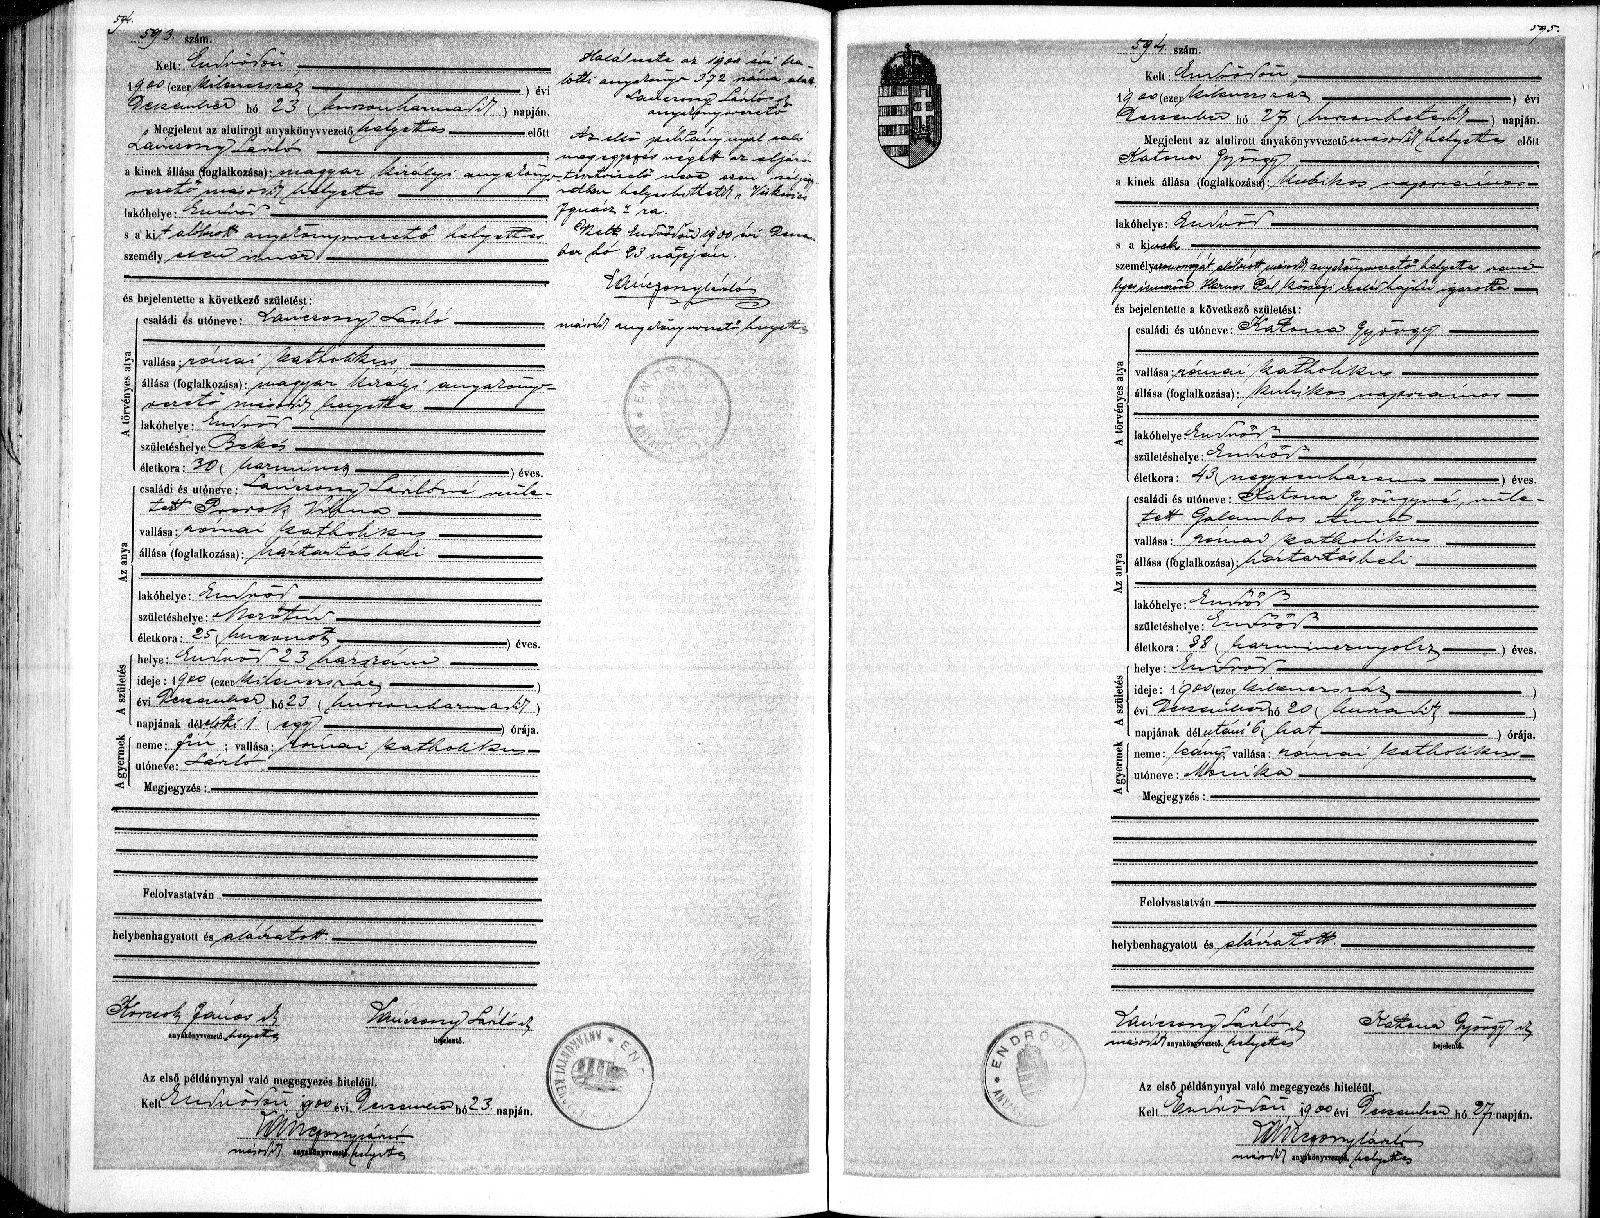 594.
593. szám.
Kelt: Endrődön
1900 (ezer kilenczszáz) évi
Deczember hó 23 (huszonharmadik) napján.
Megjelent az alulirott anyakönyvvezető helyettes előtt
Lánczony László
a kinek állása (foglalkozása): magyar királyi anyakönyv-
vezető másodk helyettes
lakóhelye: Endrőd
s a kit alólirott anyakönyvvezető helyettes
személyesen ismer
és bejelentette a következő születést:
A törvényes atya
családi és utóneve: Lánczony László
vallása: római katholikus,
állása (foglalkozása): magyar királyi anyakönyv-
vezető másodk helyettes
lakóhelye: Endrőd
születéshelye Békés
életkora: 30 (harmincz) éves.
Az anya
családi és utóneve: Lánczony Lászlóné szüle-
tett Vilma
vallása: római katholikus
állása (foglalkozása): háztartásbeli
lakóhelye: Endrőd
születéshelye:
életkora: 25 (huszonöt) éves.
A születés
helye: Endrőd 23 házszám
ideje: 1900 (ezer kilenczszáz)
évi Deczember hó 23 (huszonharmadik)
napjának délelőtti 1 (egy) órája.
A gyermek
neme: fiu; vallása: római katholikus
utóneve: László
Megjegyzés:
Felolvastatván
helybenhagyatott és aláiratott.
Korcsok János sk
anyakönyvvezető. helyettes
Lánczony László sk
bejelentő.
Az első példánynyal való megegyezés hiteléül.
Kelt Endrődön 1900 évi Deczember hó 23 napján.
Lánczony László
másodk anyakönyvvezető. helyettes
Halálesete az 1900 évi ha-
lotti anyakönyv 372 száma alatt
Lánczony László sk
anyakönyvvezető
Az első példánynyal való
megegyezés végett az eljáró
tisztviselő neve ezen
helyesbíttetik
Ignácz" ra.
Kelt Endrődön 1900 évi Deczem-
ber hó 23 napján.
Lánczony László
másodk anyakönyvvezető helyettes
ENDRŐD
595.
594. szám.
Kelt: Endrődön
1900 (ezer kilenczszáz) évi
Deczember hó 27 (huszonhetedik) napján.
Megjelent az alulirott anyakönyvvezető másodk helyettes előtt
Katona György
a kinek állása (foglalkozása): kubikos napszámos
lakóhelye: Endrőd
s a kinek
személyazonosságát alólirott másodk anyakönyvvezető helyettes szemé-
lyes ismerőse Pál községi igazolta
és bejelentette a következő születést:
A törvényes atya
családi és utóneve: Katona György
vallása: római katholikus
állása (foglalkozása): kubikos napszámos
lakóhelye Endrőd
születéshelye: Endrőd
életkora: 43 (negyvenhárom) éves.
Az anya
családi és utóneve: Katona Györgyné, szüle-
tett Galambos Anna
vallása: római katholikus
állása (foglalkozása): háztartásbeli
lakóhelye: Endrőd
születéshelye: Endrőd
életkora: 38 (harmincznyolcz) éves.
A születés
helye: Endrőd
ideje: 1900 (ezer kilenczszáz)
évi Deczember hó 20 (huszadik)
napjának délutáni 6 (hat) órája.
A gyermek
neme: leány; vallása: római katholikus
utóneve: Monika
Megjegyzés:
Felolvastatván
helybenhagyatott és aláiratott.
Lánczony László sk
másodk anyakönyvvezető. helyettes
Katona György sk
bejelentő.
Az első példánynyal való megegyezés hiteléül.
Kelt Endrődön 1900 évi Deczember hó 27 napján.
Lánczony László
másodk anyakönyvvezető. helyettes